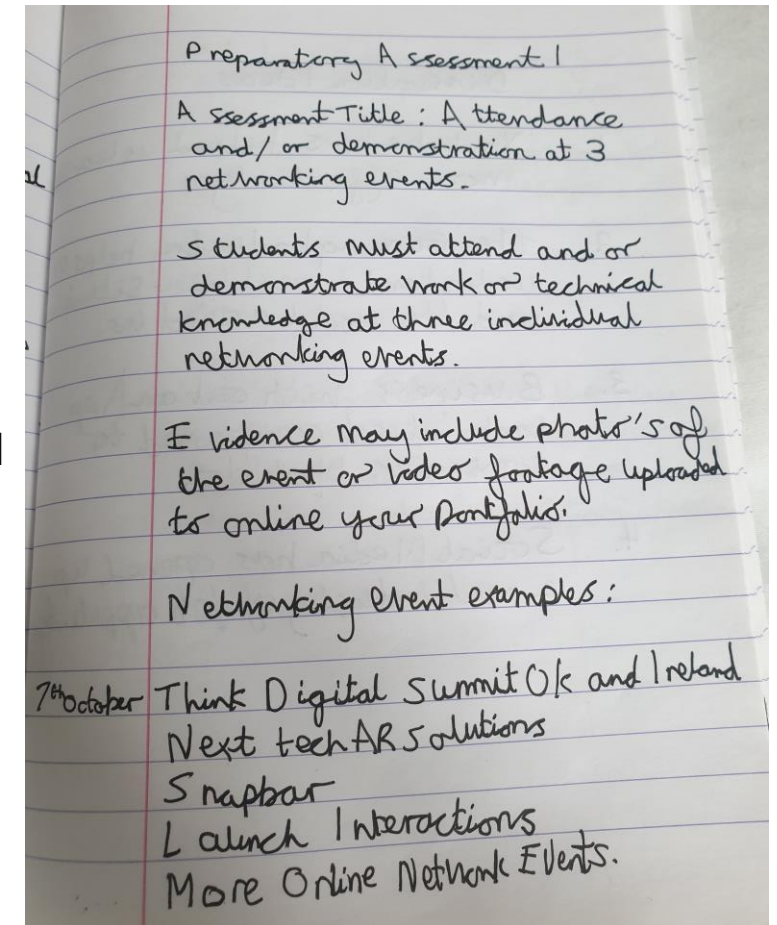 Preparatory Assessment 1
Assessment Title : Attendance
and/or demonstration at 3
networking events.
Students must attend and or
demonstrate work or technical
knowledge at three individual
networking events.
Evidence may include photo's of
the event or video footage uploaded
to online your Portfolio.
Networking event examples:
7th October Think Digital Summit Uk and Ireland
Next tech AR Solutions
Snapbar
Launch Interactions
More Online Network Events.